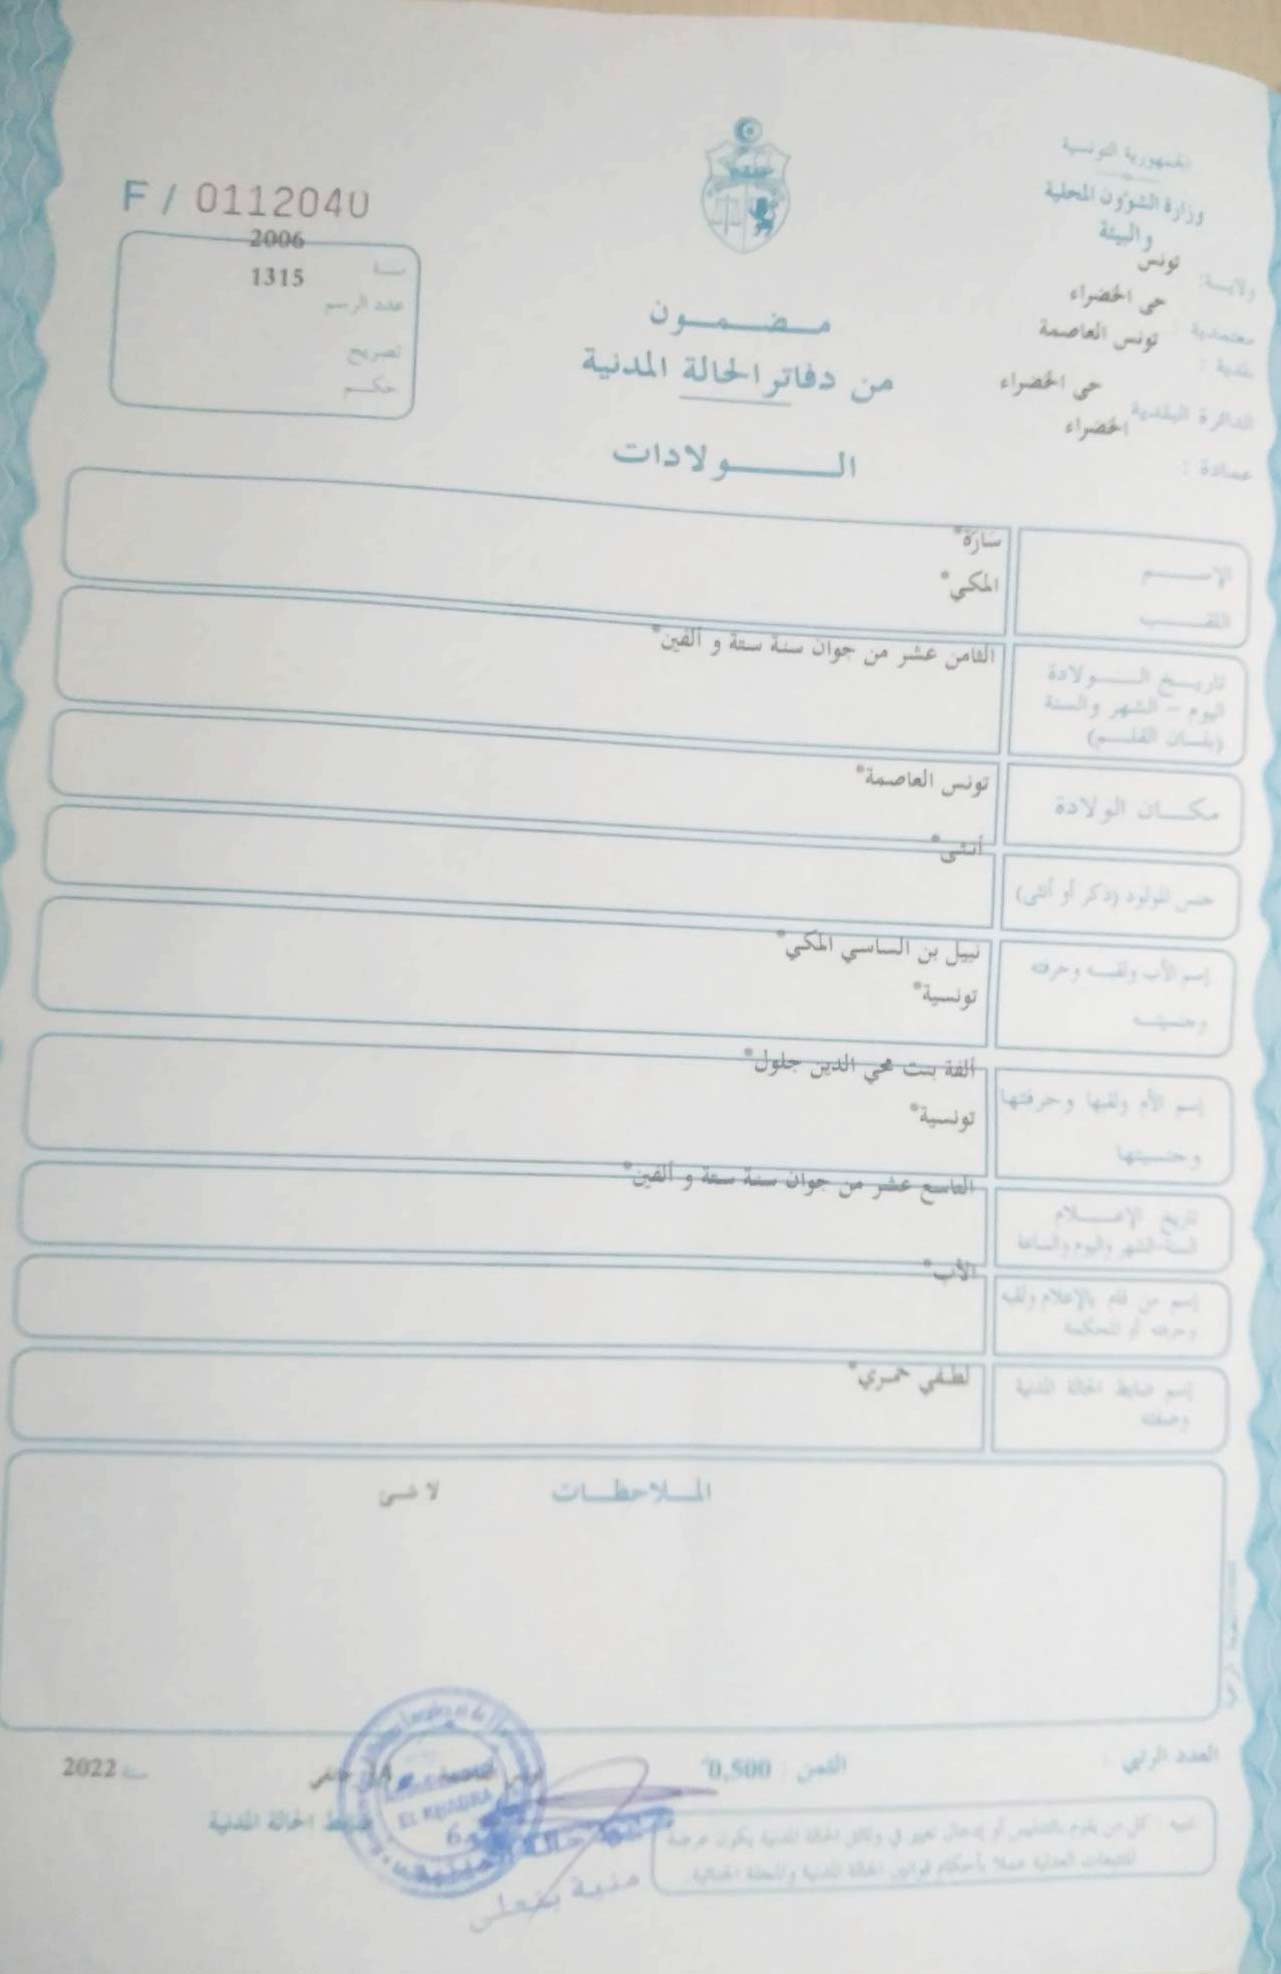 الجمهورية التونسية
وزارة الشؤون المحلية
والبيئة
ولايــة: تونس
معتمدية : حى الخضراء
بلدية : تونس العاصمة
الدائرة البلدية حى الخضراء
عمادة : الخضراء
F / 0112040
سنة 2006
عدد الرسم 1315
تصريح
حكم
مضمون
من دفاتر الحالة المدنية
الولادات
الإسم سارة*
اللقب المكي*
تاريخ الولادة الثامن عشر من جوان سنة ستة و ألفين*
اليوم – الشهر والسنة
(بلسان القلم)
مكان الولادة تونس العاصمة*
جنس المولود (ذكر أو أنثى) أنثى*
إسم الأب ولقبه وحرفته نبيل بن الساسي المكي*
وجنسيته تونسية*
إسم الأم ولقبها وحرفتها ألفة بنت محي الدين جلول*
وجنسيتها تونسية*
تاريخ الإعلام التاسع عشر من جوان سنة ستة و ألفين*
السنة-الشهر واليوم والساعة
إسم من قام بالإعلام ولقبه الأب*
وحرفته أو المحكمة
إسم ضابط الحالة المدنية لطفي حمري*
وصفته
الملاحظات لا شئ
العدد الرتبي :
الثمن : 0,500
جانفي سنة 2022
ضابط الحالة المدنية
تنبيه : كل من يقوم بالتدليس أو إدخال تغيير في وثائق الحالة المدنية يكون عرضة
للتتبعات العدلية عملا بأحكام قوانين الحالة المدنية والمجلة الجنائية.
EL KHADRA